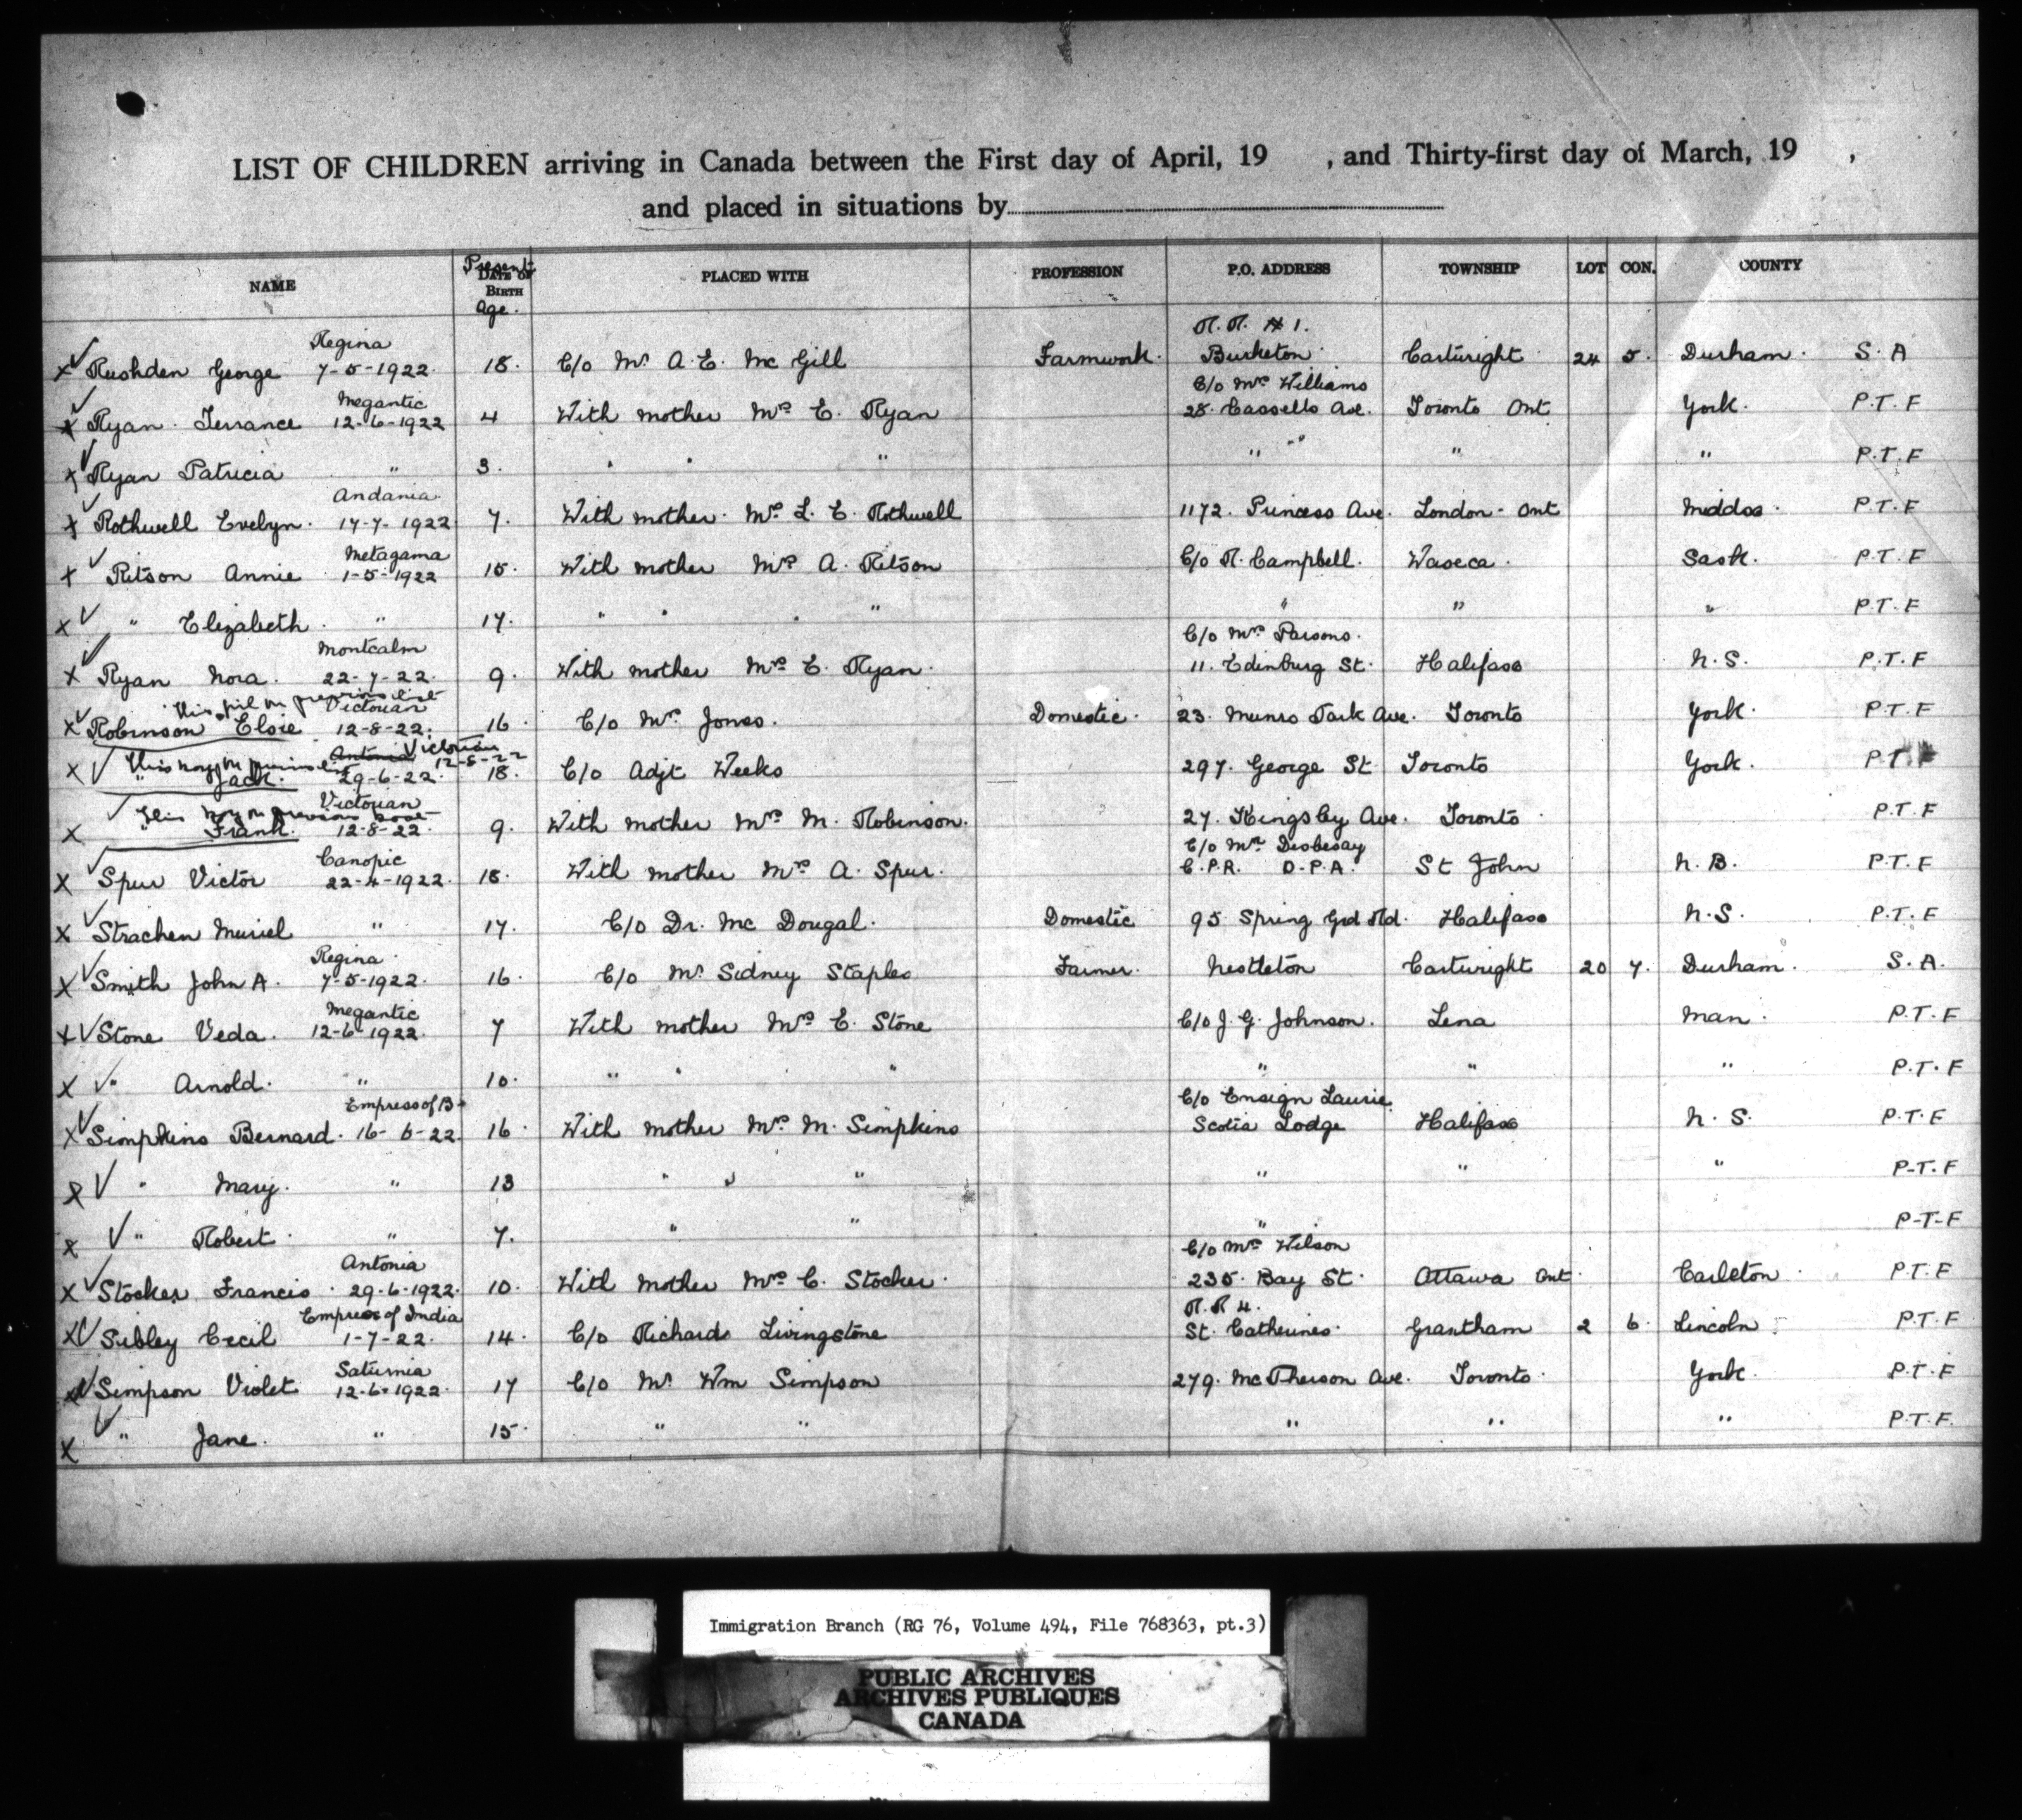 LIST OF CHILDREN arriving in Canada between the First day of April, 19 , and Thirty-first day of March, 19 ,
and placed in situations by
NAME Present DATE OF BIRTH Age. PLACED WITH PROFESSION P.O. ADDRESS TOWNSHIP LOT CON. COUNTY
Regina R.R. # 1.
X ✓ Rushden George 7-5-1922. 18. C/o Mr A. E. Mc Gill Farmwork. Burketon Cartwright 24 5. Durham. S. A
Megantic C/o Mrs Williams
X ✓ Ryan. Terrance 12-6-1922 4 With mother Mrs E. Ryan 28. Cassells Ave. Toronto Ont York. P.T.F
X ✓ Ryan Patricia " 3. " " " " " " " P.T.F
Andania
X ✓ Rothwell Evelyn. 17-7-1922 7. With mother. Mrs L. E. Rothwell 1172. Princess Ave. London - Ont Middsx. P.T.F
Metagama
X ✓ Ritson Annie 1-5-1922 15. With mother Mrs A. Ritson C/o R. Campbell. Waseca. Sask. P.T.F
X ✓ " Elizabeth. " 17. " " " " " " " P.T.F
Montcalm C/o Mrs Parsons.
X ✓ Ryan Nora. 22-7-22. 9. With mother Mrs E. Ryan. 11. Edinburg St. Halifax N.S. P.T.F
This girl on previous list Victorian
X ✓ Robinson Elsie 12-8-22. 16. C/o Mrs. Jones. Domestic. 23. Munro Park Ave. Toronto York. P.T.F
This boy on previous list Antonia Victorian 12-8-22
X ✓ " Jack. 29-6-22. 18. C/o Adjt Weeks 297. George St Toronto York. P.T.F
This boy on previous Victorian
X ✓ " Frank. 12-8-22. 9. With mother Mrs M. Robinson. 27. Kingsley Ave. Toronto. P.T.F
Canopic C/o Mr. Desbesay
X ✓ Spur Victor 22-4-1922. 18. With mother Mrs A. Spur. C.P.R. D.P.A. St John N.B. P.T.F
X ✓ Strachen Muriel " 17. C/o Dr. Mc Dougal. Domestic 95 Spring Grd Rd. Halifax N.S. P.T.F
Regina.
X ✓ Smith John A. 7-5-1922. 16. C/o Mr Sidney Staples Farmer. Nestleton Cartwright 20 7. Durham. S.A.
Megantic
X ✓ Stone Veda. 12-6-1922. 7 With mother Mrs E. Stone C/o J. G. Johnson. Lena Man. P.T.F
X ✓ " Arnold. " 10. " " " " " " P.T.F
Empress of B- C/o Ensign Laurie
X ✓ Simpkins Bernard. 16-6-22. 16. With mother Mrs. M. Simpkins Scotia Lodge Halifax N. S. P.T.F
X ✓ " Mary. " 13 " " " " " " P-T-F
X ✓ " Robert. " 7. " " " P-T-F
Antonia C/o Mrs Wilson
X ✓ Stocker Francis. 29.6.1922. 10. With mother Mrs C. Stocker. 235. Bay St. Ottawa Ont. Carleton. P.T.F
Empress of India R.R 4.
X ✓ Sibley Cecil 1-7-22. 14. C/o Richards Livingstone St. Catherines. Grantham 2 6. Lincoln. P.T.F
Saturnia
X ✓ Simpson Violet 12-6-1922. 17 C/o Mr. Wm Simpson 279. McPherson Ave. Toronto. York. P.T.F
X ✓ " Jane. " 15. " " " " " P.T.F.
Immigration Branch (RG 76, Volume 494, File 768363, pt.3)
PUBLIC ARCHIVES
ARCHIVES PUBLIQUES
CANADA